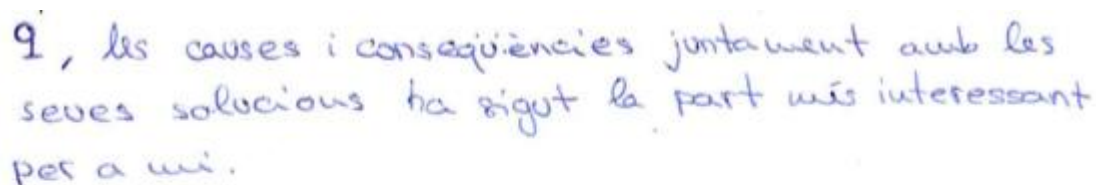 9, les causes i conseqüències juntament amb les
seves solucions ha sigut la part més interessant
per a mi.